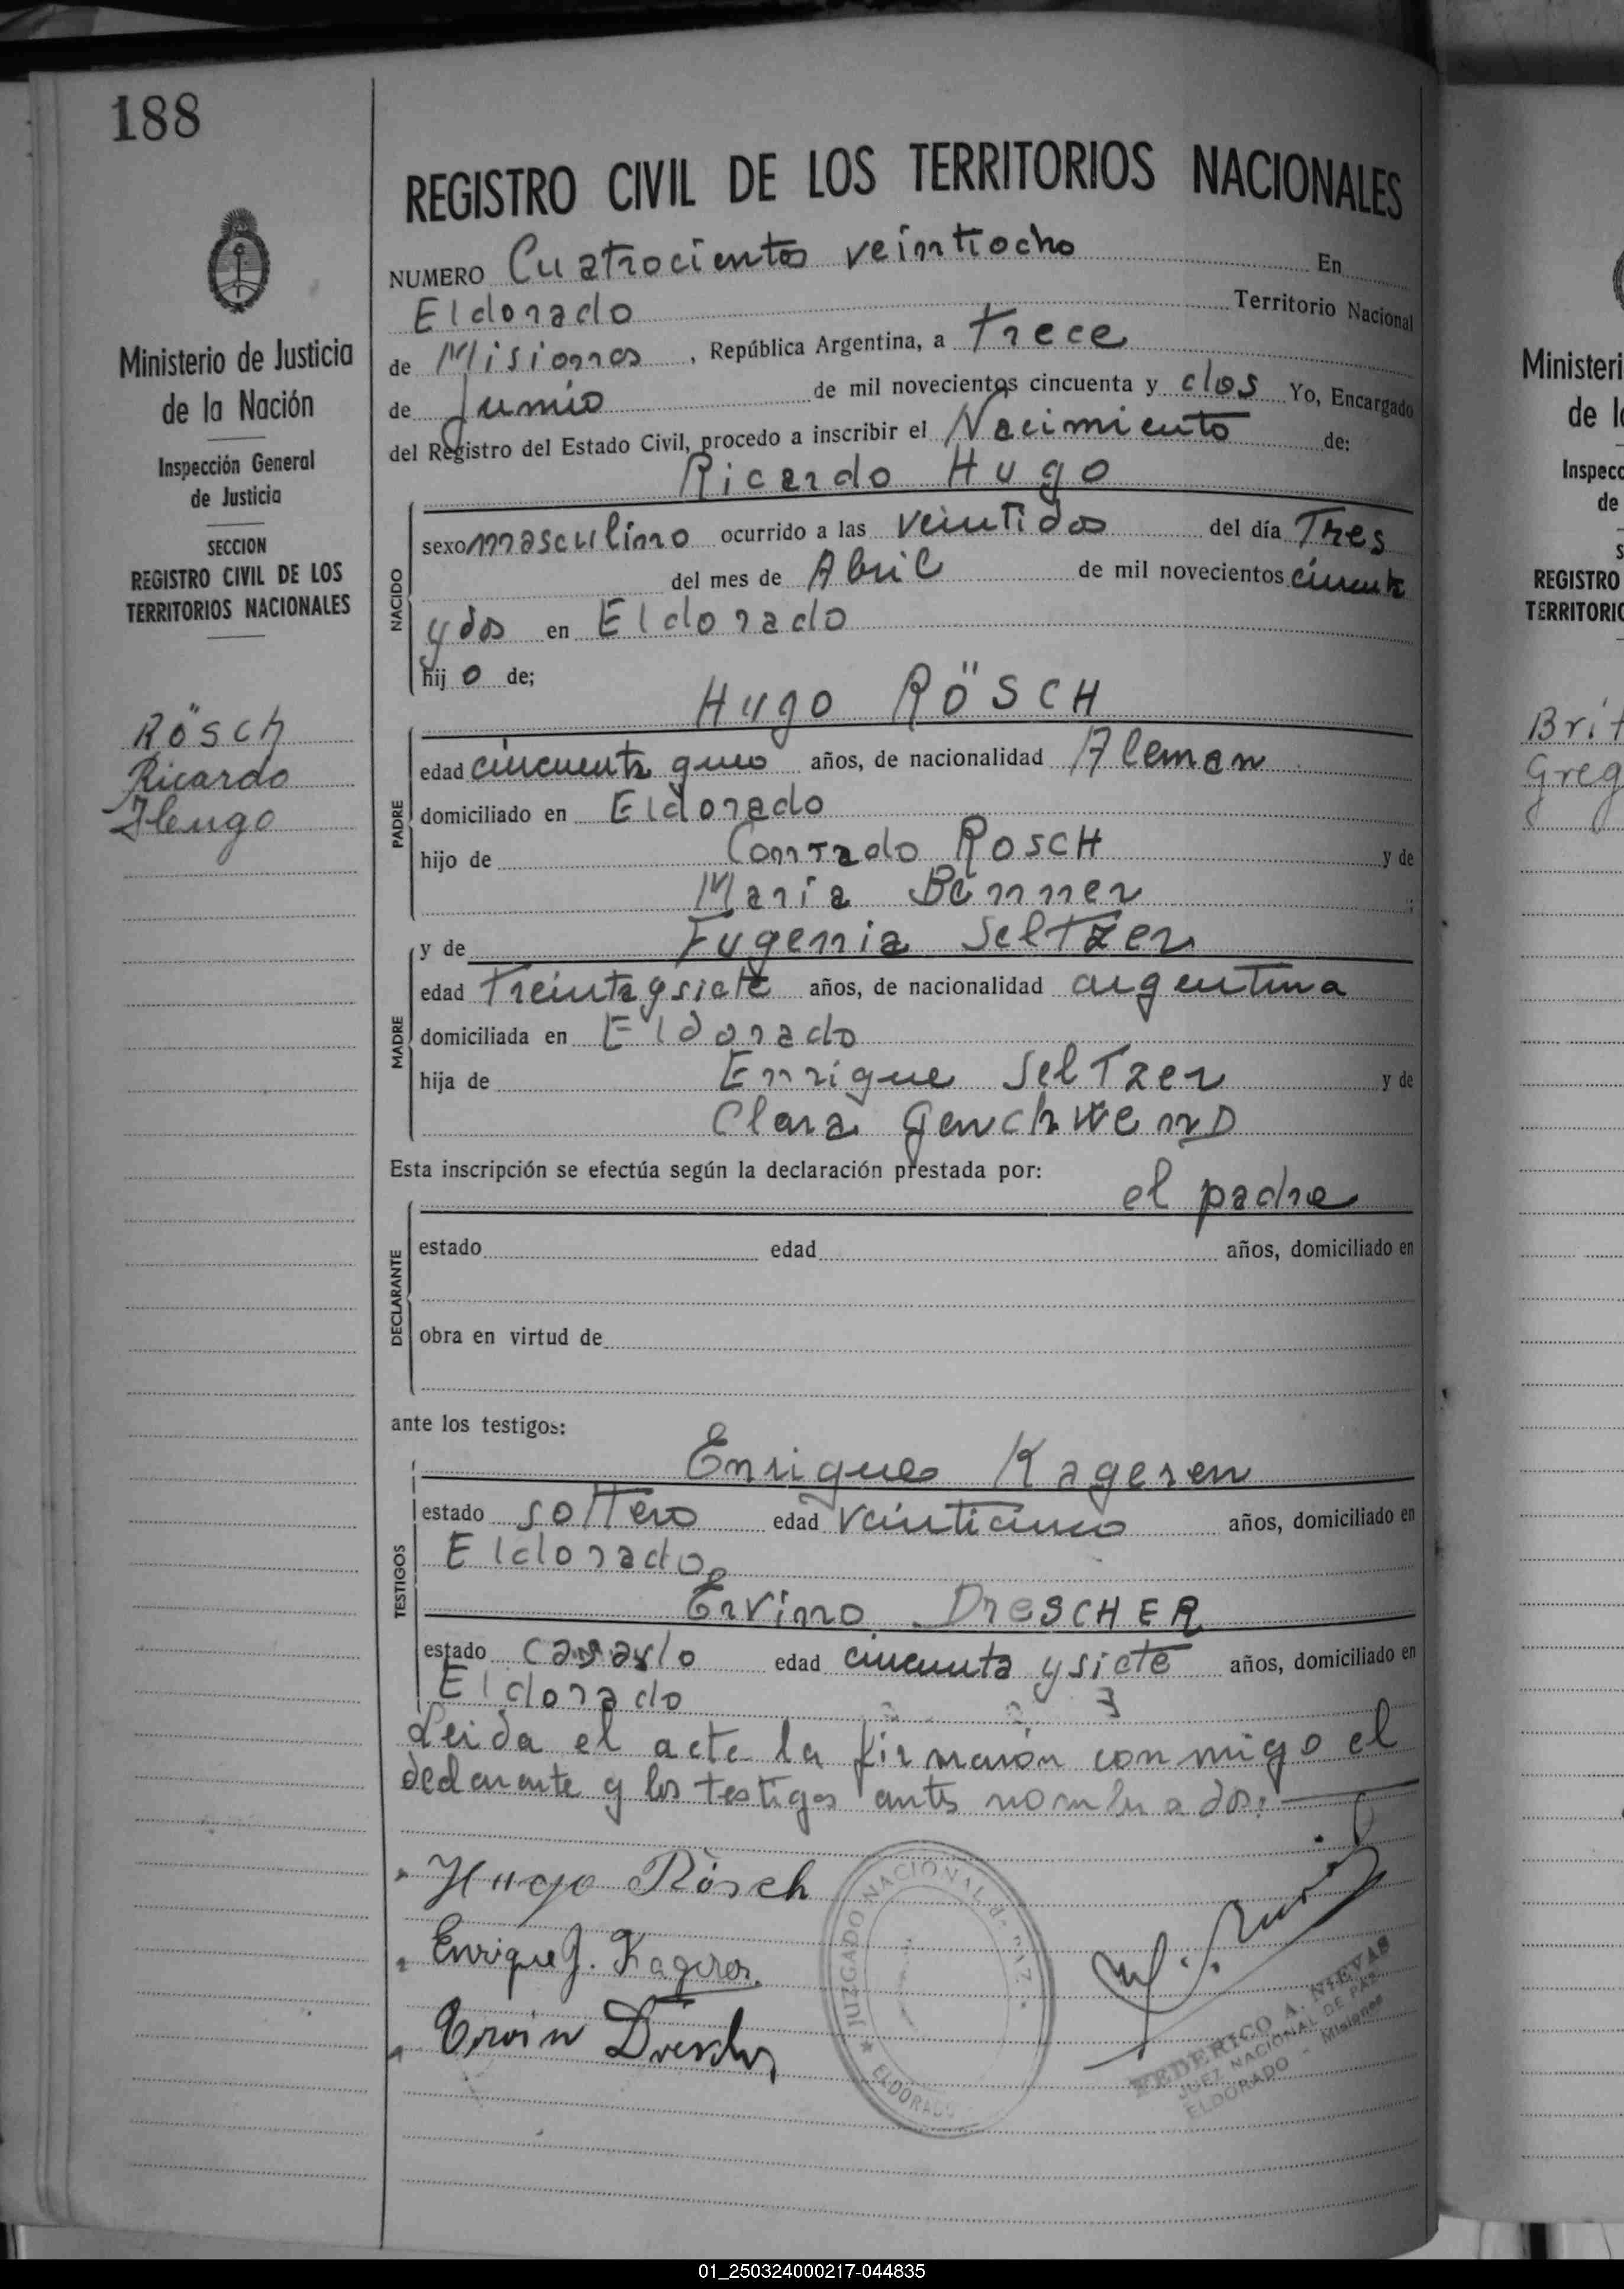 188
Ministerio de Justicia
de la Nación
Inspección General
de Justicia
SECCION
REGISTRO CIVIL DE LOS
TERRITORIOS NACIONALES
RÖSCH
Ricardo
Hugo
REGISTRO CIVIL DE LOS TERRITORIOS NACIONALES
NUMERO Cuatrocientos veintiocho En
Eldorado Territorio Nacional
de Misiones, República Argentina, a Trece
de Junio de mil novecientos cincuenta y dos Yo, Encargado
del Registro del Estado Civil, procedo a inscribir el Nacimiento de:
Ricardo Hugo
NACIDO
sexo masculino ocurrido a las veintidos del día Tres
del mes de Abril de mil novecientos cincuenta
y dos en Eldorado
hijo de;
Hugo RÖSCH
PADRE
edad cincuenta y uno años, de nacionalidad Aleman
domiciliado en Eldorado
hijo de Conrado ROSCH y de
Maria
y de Eugenia Seltzer
MADRE
edad Treinta y siete años, de nacionalidad argentina
domiciliada en Eldorado
hija de Enrique Seltzer y de
Clara
Esta inscripción se efectúa según la declaración prestada por:
el padre
DECLARANTE
estado edad años, domiciliado en
obra en virtud de
ante los testigos:
TESTIGOS
Enrique Kageren
estado soltero edad veinticinco años, domiciliado en
Eldorado
Ervino DRESCHER
estado casado edad cincuenta y siete años, domiciliado en
Eldorado
Leida el acta la firmaron conmigo el
declarante y los testigos antes nombrados.
Hugo Rösch
Enrique J.
Erwin Drescher
JUZGADO NACIONAL de PAZ
ELDORADO
FEDERICO A. NIEVAS
JUEZ NACIONAL DE PAZ
ELDORADO - Misiones
Ministeri
de l
Inspecc
de
S
REGISTRO
TERRITORIO
Brit
Greg
01_250324000217-044835